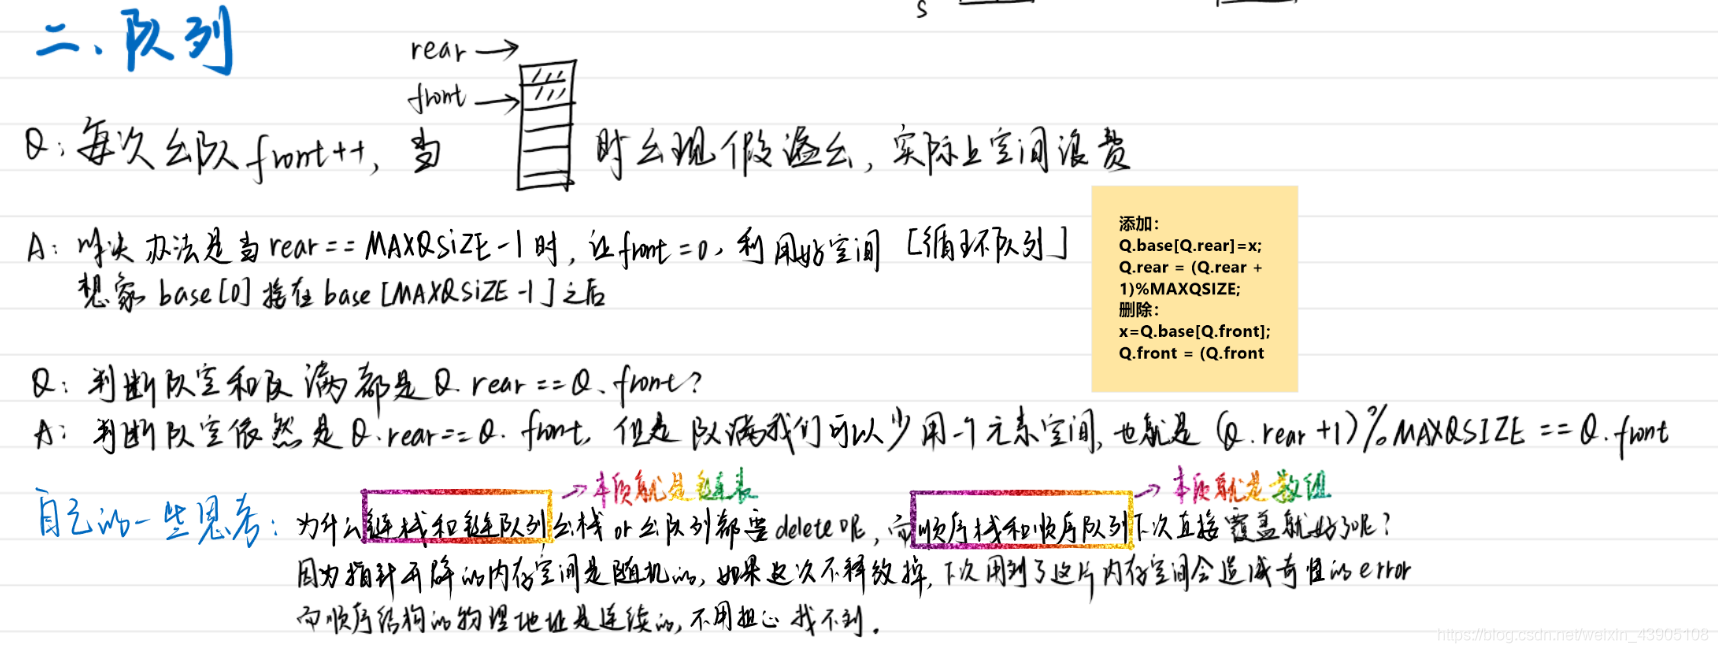 S
二、队列
rear →
front →
Q: 每次出队front++, 当 时出现假溢出, 实际上空间浪费
A: 解决办法是当rear == MAXQSIZE-1时, 让front=0, 利用好空间 [循环队列]
想象 base[0] 接在 base [MAXQSIZE-1] 之后
添加:
Q.base[Q.rear]=x;
Q.rear = (Q.rear +
1)%MAXQSIZE;
删除:
x=Q.base[Q.front];
Q.front = (Q.front
Q: 判断队空和队满都是Q.rear == Q.front?
A: 判断队空依然是Q.rear== Q.front, 但是队满我们可以少用一个元素空间, 也就是 (Q.rear+1)%MAXQSIZE == Q.front
→本质就是链表
→本质就是数组
自己的一些思考: 为什么链栈和链队列出栈or出队列都要delete呢, 而顺序栈和顺序队列下次直接覆盖就好了呢?
因为指针开辟的内存空间是随机的, 如果这次不释放掉, 下次用到了这片内存空间会造成奇怪的error
而顺序结构的物理地址是连续的, 不用担心找不到。
https://blog.csdn.net/weixin_43905108